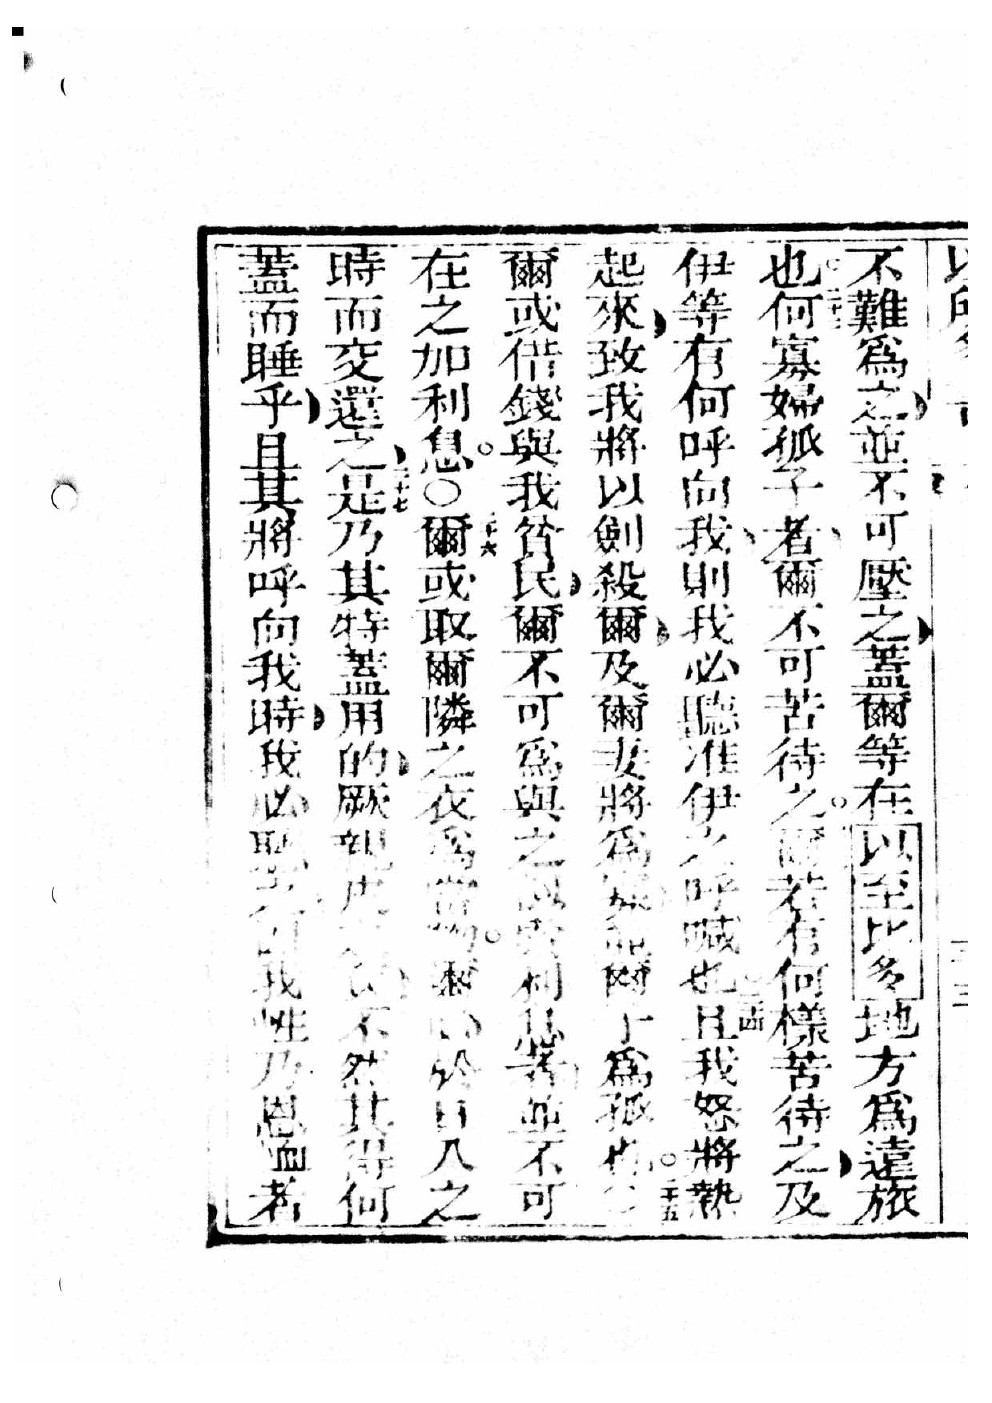 不難爲之並不可壓之蓋爾等在以至比多地方爲遠旅
也何寡婦孤子者爾不可苦待之爾若有何樣苦待之及
伊等有何呼向我則我必聽准伊之呼喊也二十四且我怒將熱
起來致我將以劍殺爾及爾妻將爲爾子爲孤也二十五
爾或借錢與我貧民爾不可爲與之利息者並不可
在之加利息〇二十六爾或取爾隣之衣爲當爾於日入之
時而交還之二十七是乃其特蓋用的厥親皮不然其得何
蓋而睡乎且其將呼向我時我必聽我性乃恩恤者